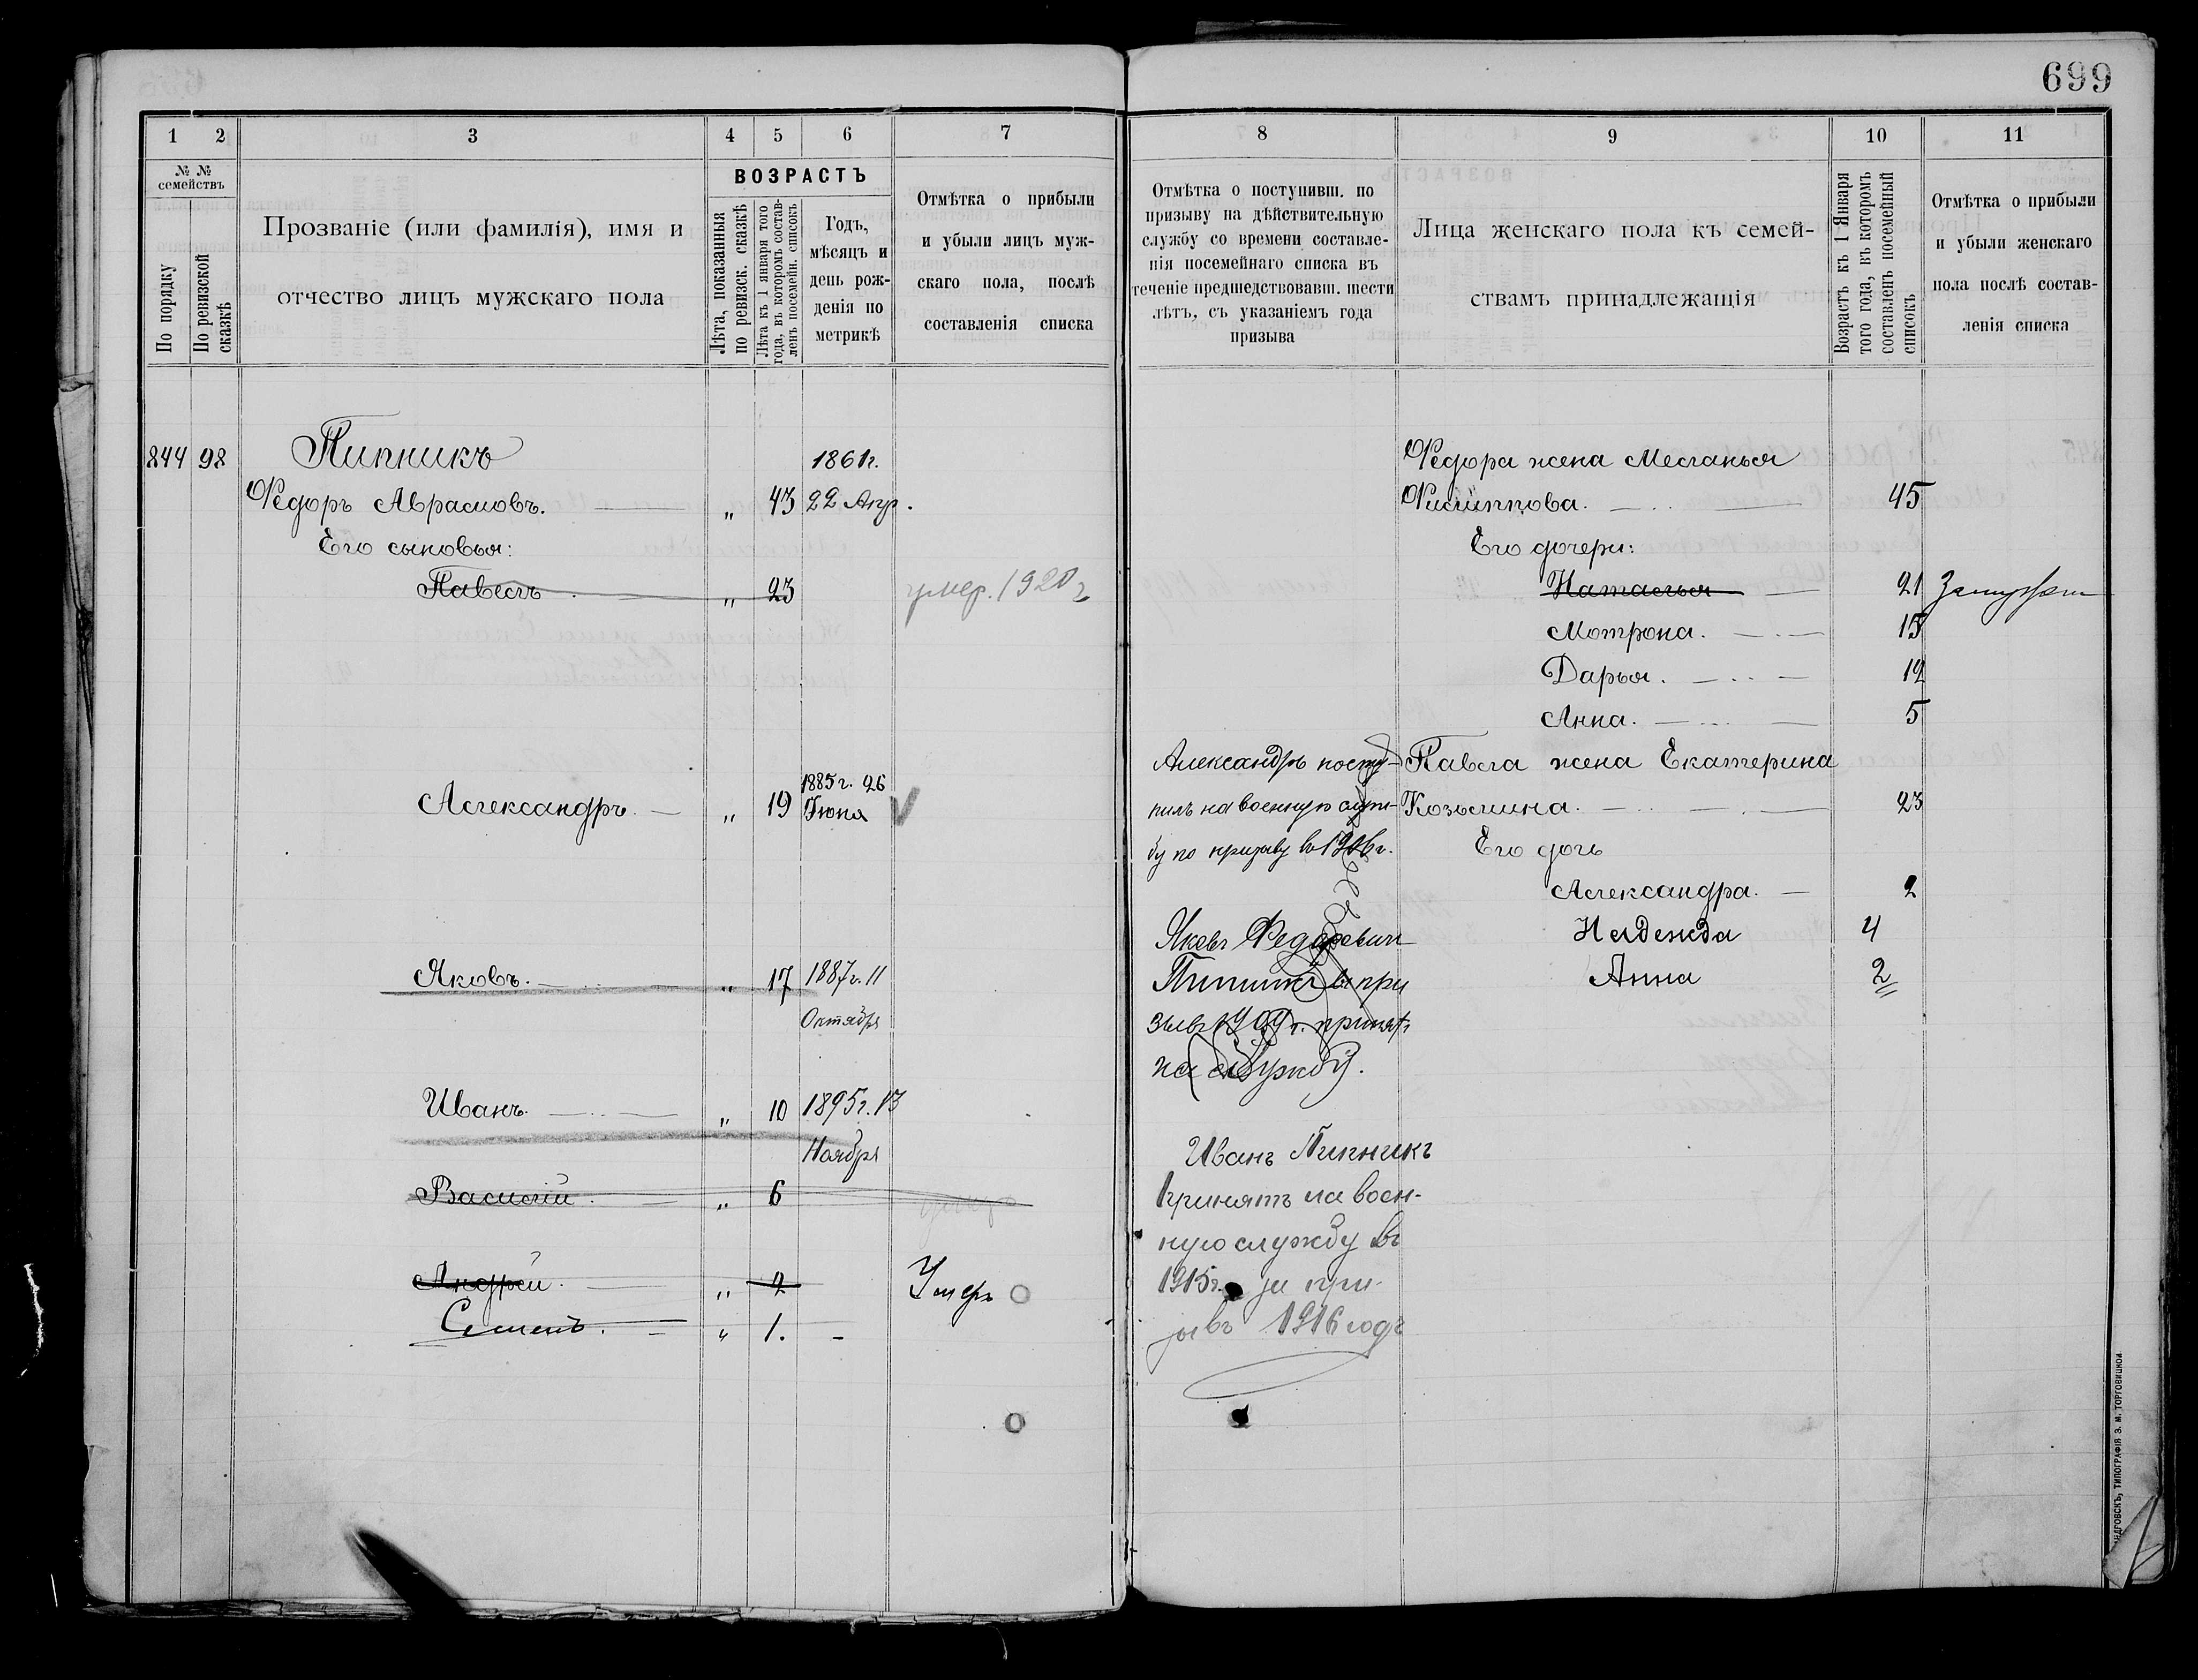 699
1
2
3
4
5
6
7
№ №
семействъ
По порядку
По ревизской сказкѣ
Прозваніе (или фамилія), имя и
отчество лицъ мужскаго пола
ВОЗРАСТЪ
Лѣта, показанныя
по ревизск. сказкѣ
Лѣта къ 1 января того
года, въ которомъ состав-
ленъ посемейн. списокъ
Годъ,
мѣсяцъ и
день рож-
денія по
метрикѣ
Отмѣтка о прибыли
и убыли лицъ муж-
скаго пола, послѣ
составленія списка
844 98 Пипникъ 1861г.
Федоръ Абрамовъ. „ 43 22 Апр.
Его сыновья:
Павелъ „ 23 умер. 1920 г
Александръ. „ 19 1885 г. 26
Іюня
Яковъ. „ 17 1887 г. 11
Октября
Иванъ. „ 10 1895 г. 13
Ноября
Василій. „ 6
Андрей. „ 2 Умеръ
Семенъ. „ 1. -
8
9
10
11
Отмѣтка о поступивш. по
призыву на дѣйствительную
службу со времени составле-
нія посемейнаго списка въ
теченіе предшедствовавш. шести
лѣтъ, съ указаніемъ года
призыва
Лица женскаго пола къ семей-
ствамъ принадлежащія
Возрастъ къ 1 Января
того года, въ которомъ
составленъ посемейный
списокъ
Отмѣтка о прибыли
и убыли женскаго
пола послѣ состав-
ленія списка
Федора жена Меланья
Филиппова. 45
Его дочери:
Наталья 21 Замужем
Мотрона. 15
Дарья. 12
Анна. 5
Павла жена Екатерина
Козьмина. 23
Его дочь
Александра. 2
Надежда 4
Анна 2
Александръ посту-
пилъ на военную служ-
бу по призыву въ 1906 г.
Яковъ Федоревич
Пипник в при
зывъ 1909 г. принят
на службу.
Иванъ Пипникъ
принятъ на воен-
ную службу въ
1915г. за при-
зывъ 1916 годъ
ТИПОГРАФІЯ Э. М. ТОРГОВИЦКОЙ